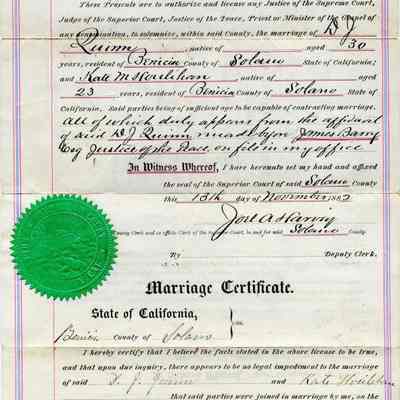 These Presents are to authorize and license any Justice of the Supreme Court,
Judge of the Superior Court, Justice of the Peace, Priest or Minister of the Gospel of
any denomination, to solemnize, within said County, the marriage of D J
Quinn, native of aged 30
years, resident of Benicia County of Solano State of California;
and Kate native of aged
23 years, resident of Benicia County of Solano State of
California. Said parties being of sufficient age to be capable of contracting marriage.
All of which duly appears from the affidavit
of said D J Quinn made before James Barry
Esq Justice of the Peace on file in my office
In Witness Whereof, I have hereunto set my hand and affixed
the seal of the Superior Court of said Solano County
this 13th day of November 188
Joel A Harvey
County Clerk and ex-officio Clerk of the Superior Court, in and for said Solano County.
By Deputy Clerk.
Marriage Certificate.
State of California,
Benicia County of Solano ss.
I hereby certify that I believed the facts stated in the above license to be true,
and that upon due inquiry, there appears to be no legal impediment to the marriage
of said D. J. Quinn and Kate
that said parties were joined in marriage by me, on the